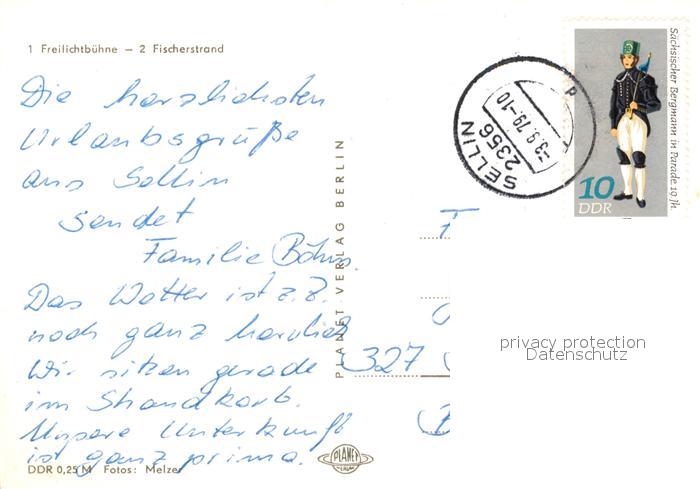 1 Freilichtbühne – 2 Fischerstrand
Die herzlichsten
Urlaubsgrüße
aus Sellin
sendet
Familie Böhm.
Das Wetter ist z.Z.
noch ganz herrlich
Wir sitzen gerade
im Strandkorb.
Unsere Unterkunft
ist ganz prima.
DDR 0,25 M Fotos: Melzer
PLANET-VERLAG BERLIN
PLANET
VERLAG
SELLIN
2356
-3.9.79.-10
P
Sächsischer Bergmann in Parade 19. Jh.
10
DDR
F
327
privacy protection
Datenschutz